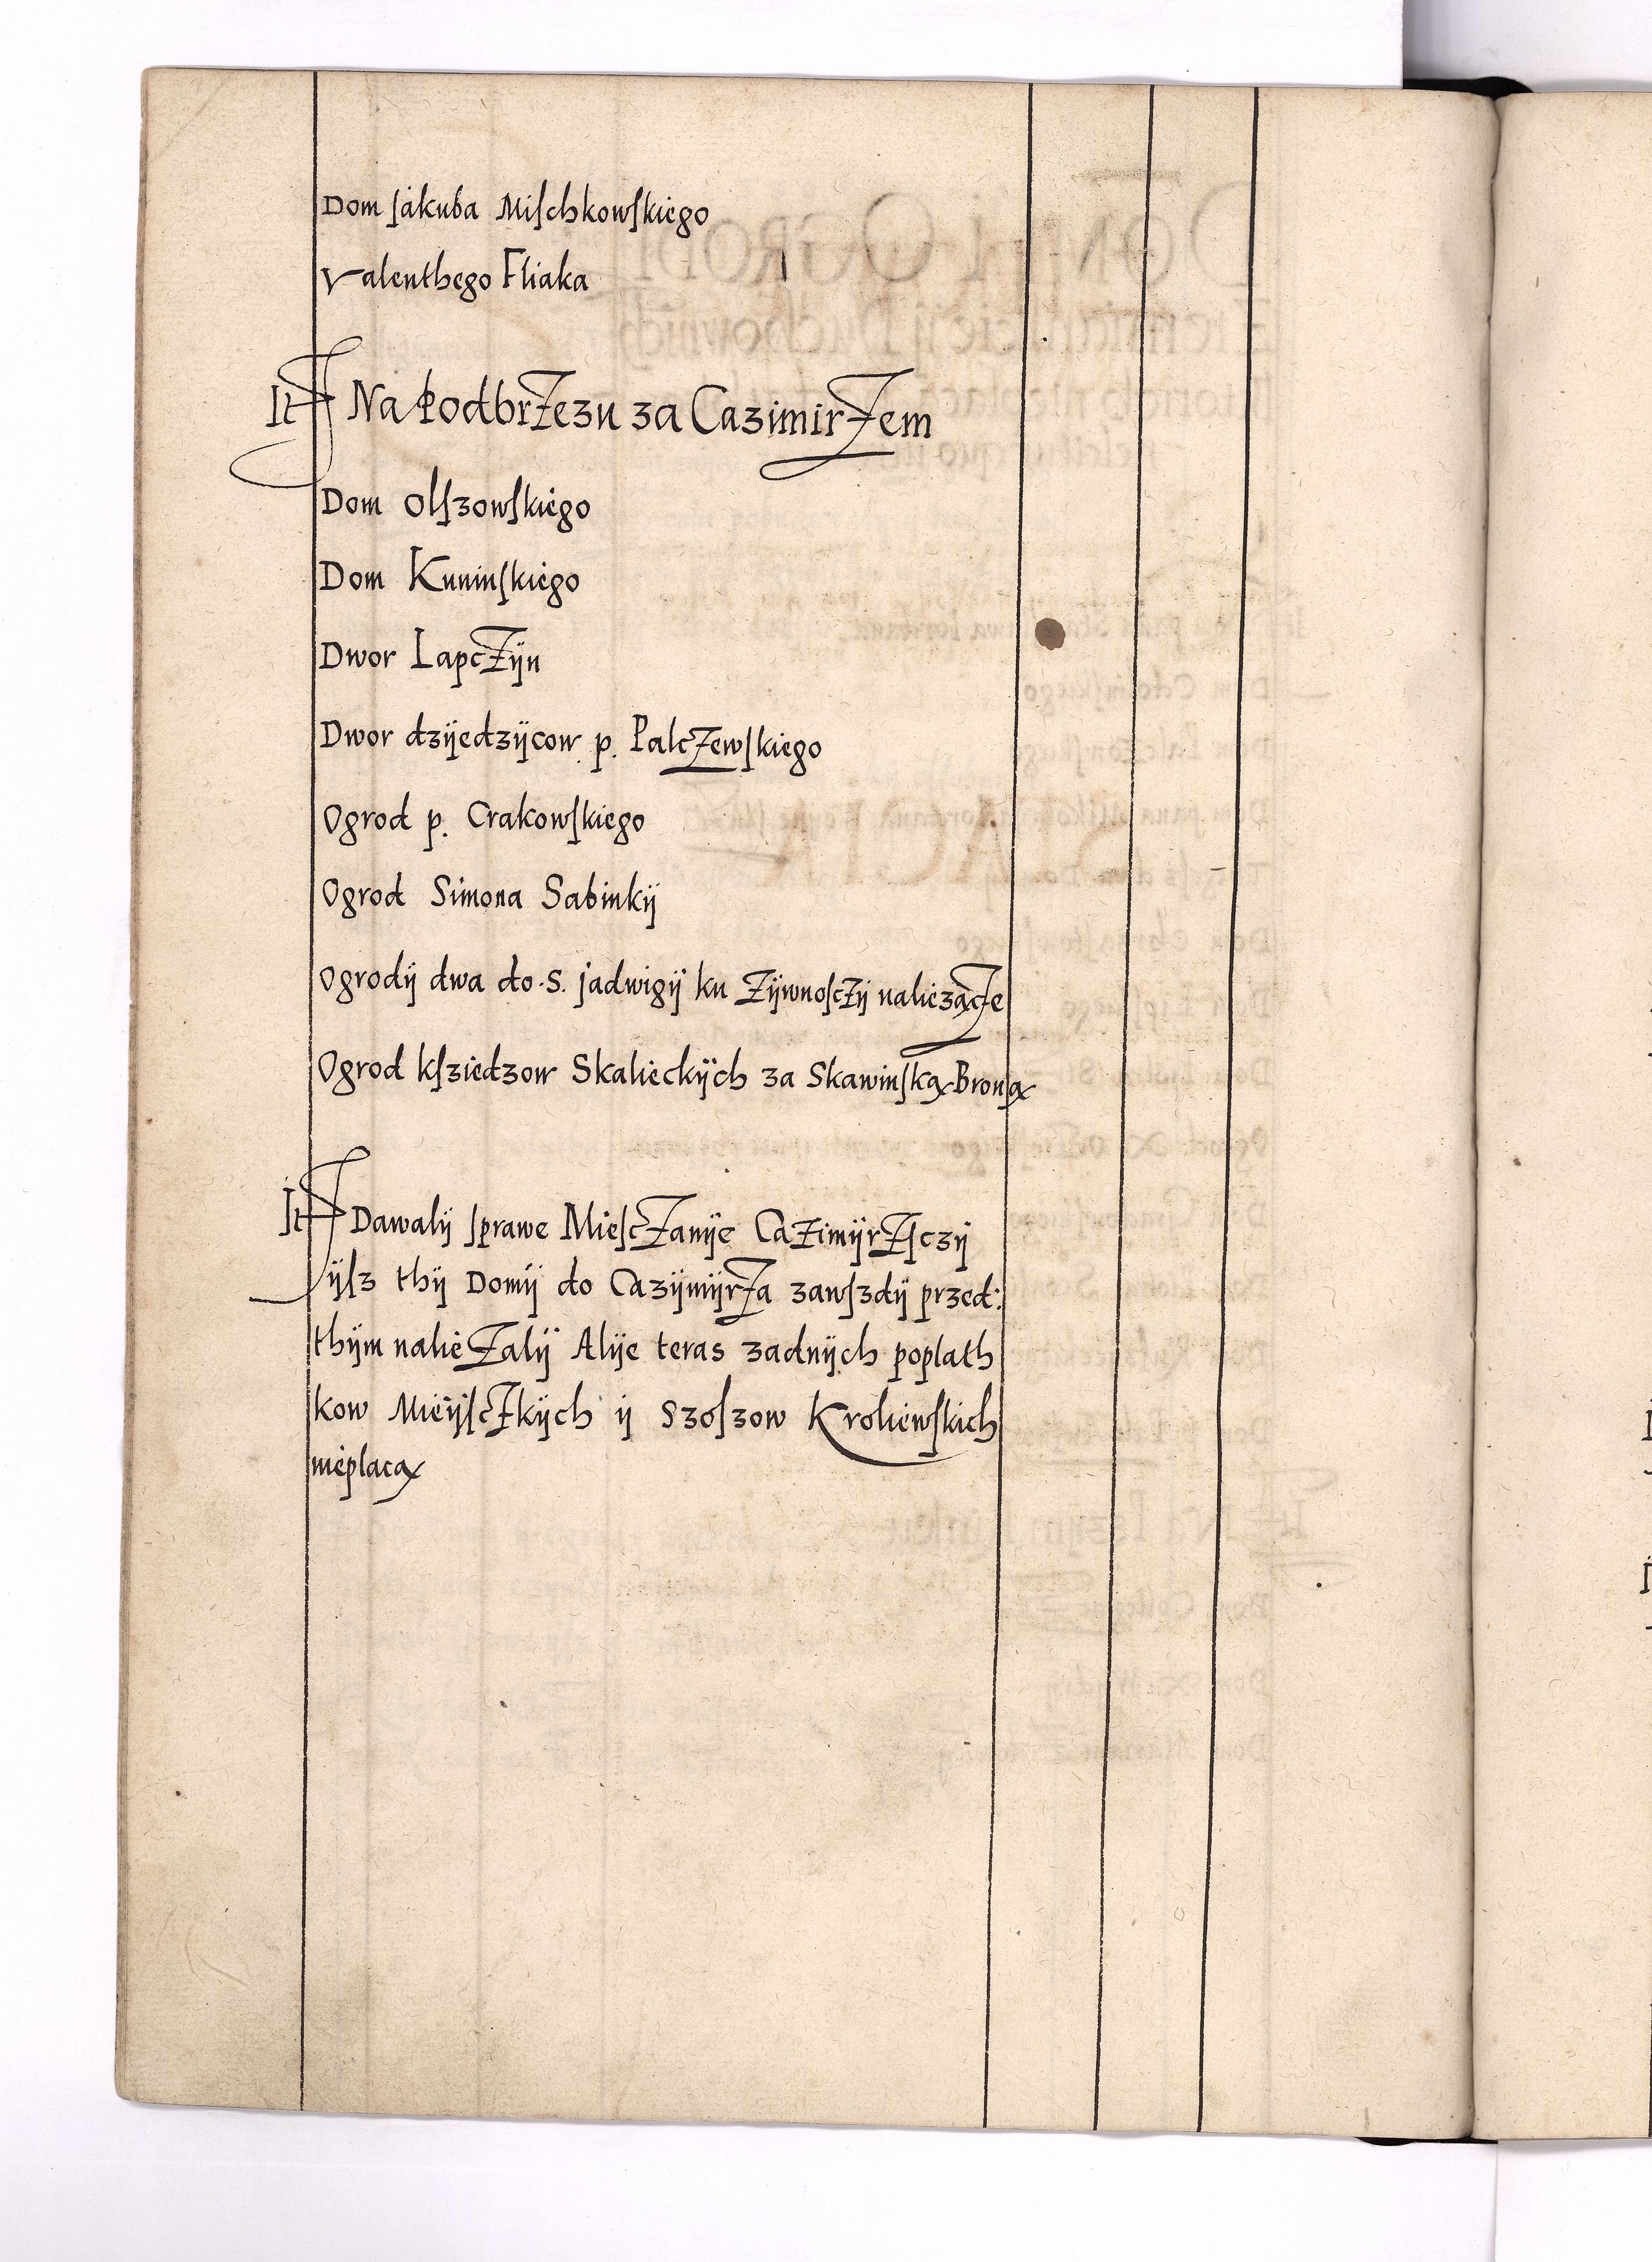 Dom Jakuba Miſchkowſkiego
Valenthego Fliaka
It Na Podbrzezu za Cazimirzem
Dom Olſzowſkiego
Dom Kuninſkiego
Dwor Lapczÿn
Dwor dzÿedzÿcow p. Palczewſkiego
Ogrod p. Crakowſkiego
Ogrod Simona Sabinkÿ
Ogrodÿ dwa do S. Jadwigÿ ku zÿwnoſczÿ naliezącze
Ogrod kſziedzow Skalieckÿch za Skawinſką Broną
It Dawalÿ ſprawe Mieſczanÿe Cazimÿrzſczÿ
ÿſz thÿ Domÿ do Cazÿmÿrza zawſzdÿ przed:
thÿm naliezalÿ Alÿe teras zadnÿch poplath
kow Mieÿſczkÿch ÿ Szoſzow Kroliewſkich
nieplacą